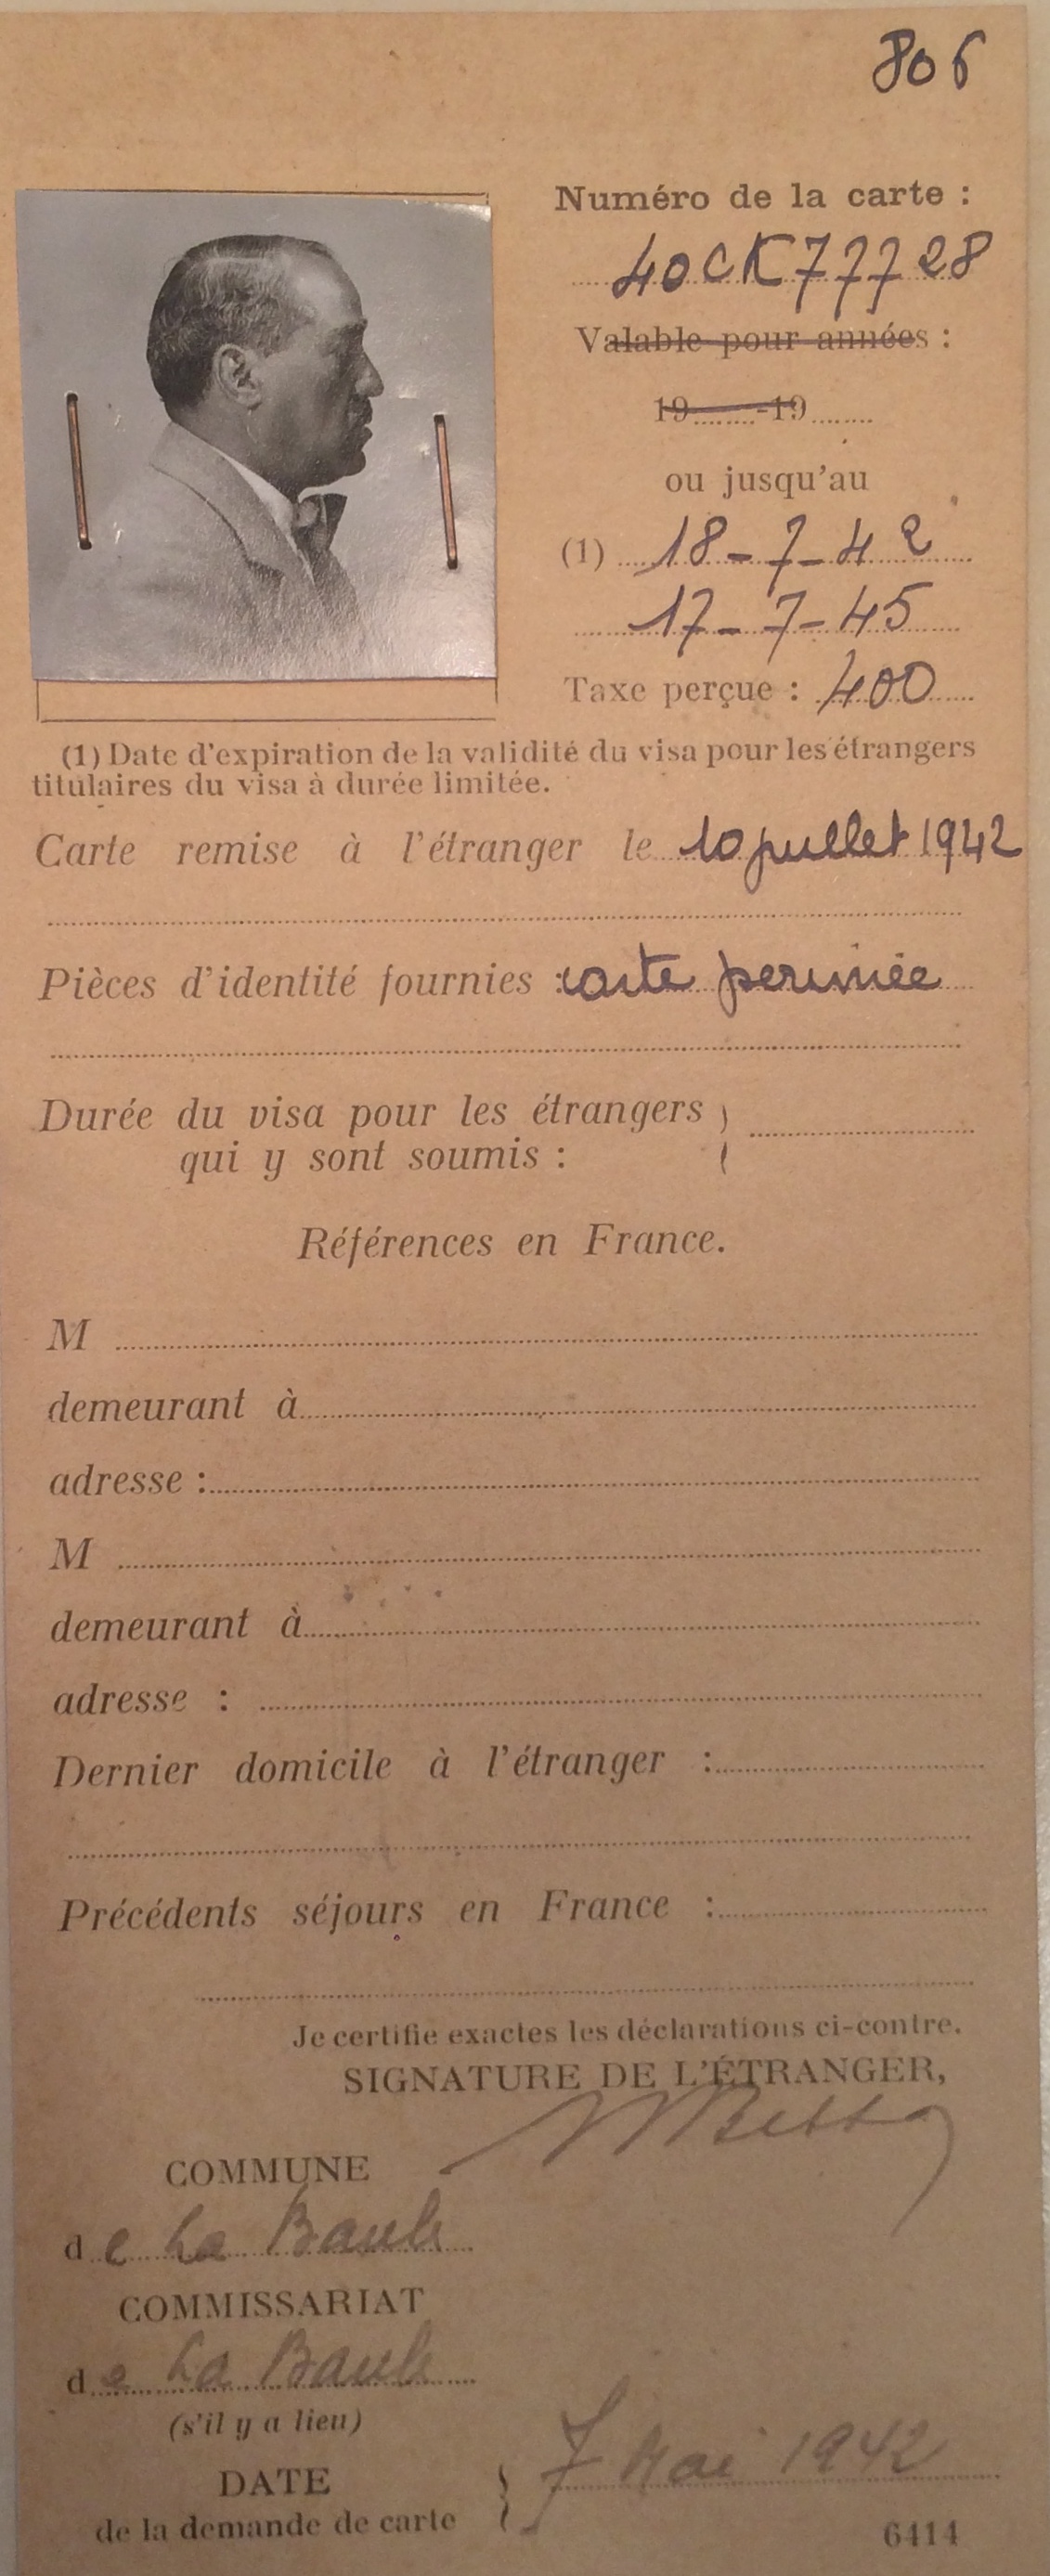 806
Numéro de la carte :
40CK77728
Valable pour années :
19 -19
ou jusqu'au
(1) 18-7-42
17-7-45
Taxe perçue : 400
(1) Date d'expiration de la validité du visa pour les étrangers
titulaires du visa à durée limitée.
Carte remise à l'étranger le 10 juillet 1942
Pièces d'identité fournies : carte perimée
Durée du visa pour les étrangers
qui y sont soumis :
Références en France.
M
demeurant à
adresse :
M
demeurant à
adresse :
Dernier domicile à l'étranger :
Précédents séjours en France :
Je certifie exactes les déclarations ci-contre.
SIGNATURE DE L'ÉTRANGER,
COMMUNE
de La Baule
COMMISSARIAT
de La Baule
(s'il y a lieu)
DATE
de la demande de carte
7 Mai 1942
6414